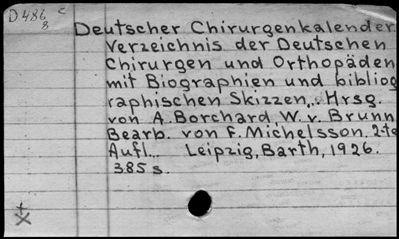 D.486 c
8
Deutscher Chirurgenkalender
Verzeichnis der Deutschen
Chirurgen und Orthopäden
mit Biographien und bibliog
raphischen Skizzen,. Hrsg.
von A. Borchard, W. v. Brunn
Bearb. von F. Michelsson. 2-te
Aufl... Leipzig, Barth, 1926.
385 s.